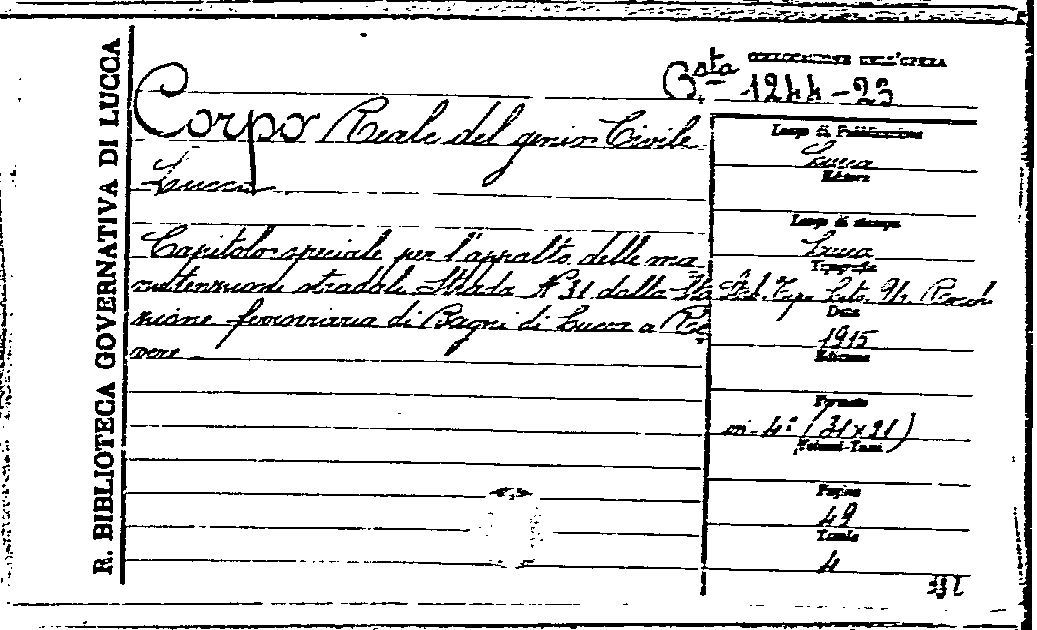 R. BIBLIOTECA GOVERNATIVA DI LUCCA
COLLOCAZIONE DELL'OPERA
Bsta 1244-23
Corpo Reale del genio Civile
Lucca
Capitolo speciale per l'appalto delle ma
nuttenzione stradale Strada N° 31 dalla Sta
zione ferroviaria di Bagni di Lucca a
vere
Luogo di Pubblicazione
Lucca
Editore
Luogo di stampa
Lucca
Tipografia
Stab. Tipo Lito.
Data
1915
Edizione
Formato
in-4° (31x21)
Volumi-Tomi
Pagine
49
Tavole
4